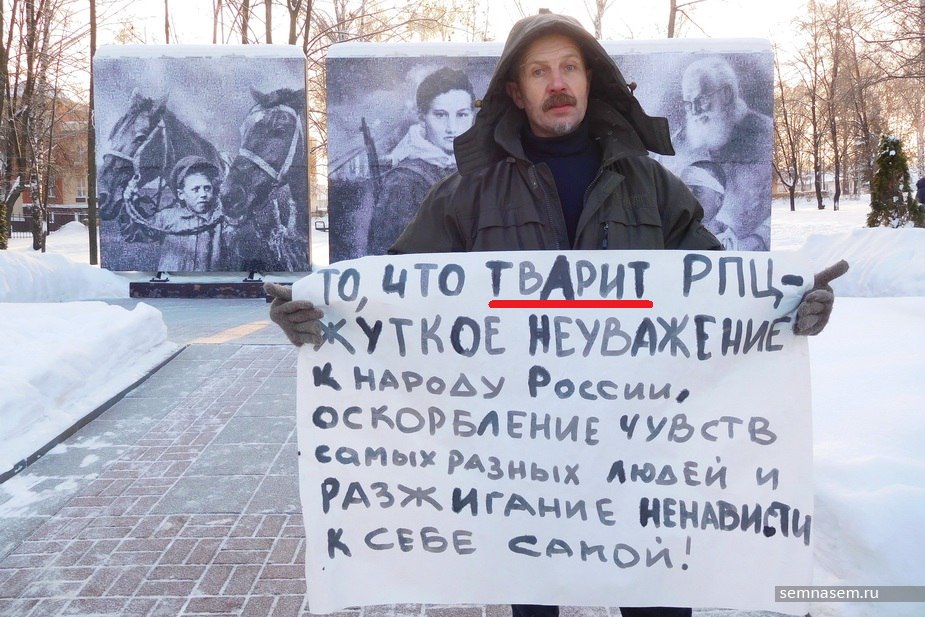 ТО, ЧТО ТВАРИТ РПЦ-
ЖУТКОЕ НЕУВАЖЕНИЕ
К НАРОДУ РОССИИ,
ОСКОРБЛЕНИЕ ЧУВСТВ
САМЫХ РАЗНЫХ ЛЮДЕЙ И
РАЗЖИГАНИЕ НЕНАВИСТИ
К СЕБЕ САМОЙ!
semnasem.ru